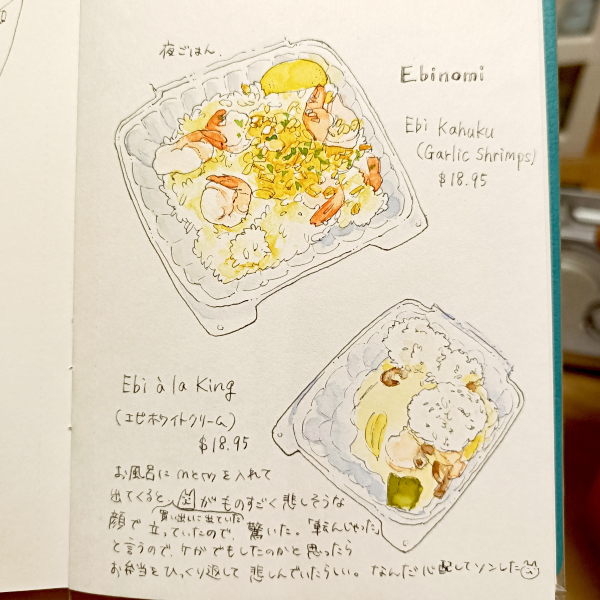 夜ごはん.
Ebinomi
Ebi Kahuku
(Garlic Shrimps)
$18.95
Ebi à la King
(エビホワイトクリーム)
$18.95
お風呂に を入れて
出てくると、 がものすごく悲しそうな
買い出しに出ていた
顔で立っていたので、驚いた。「転んじゃった」
と言うので、ケガでもしたのかと思ったら
お弁当をひっくり返して悲しんでいたらしい。なんだ心配してソンした